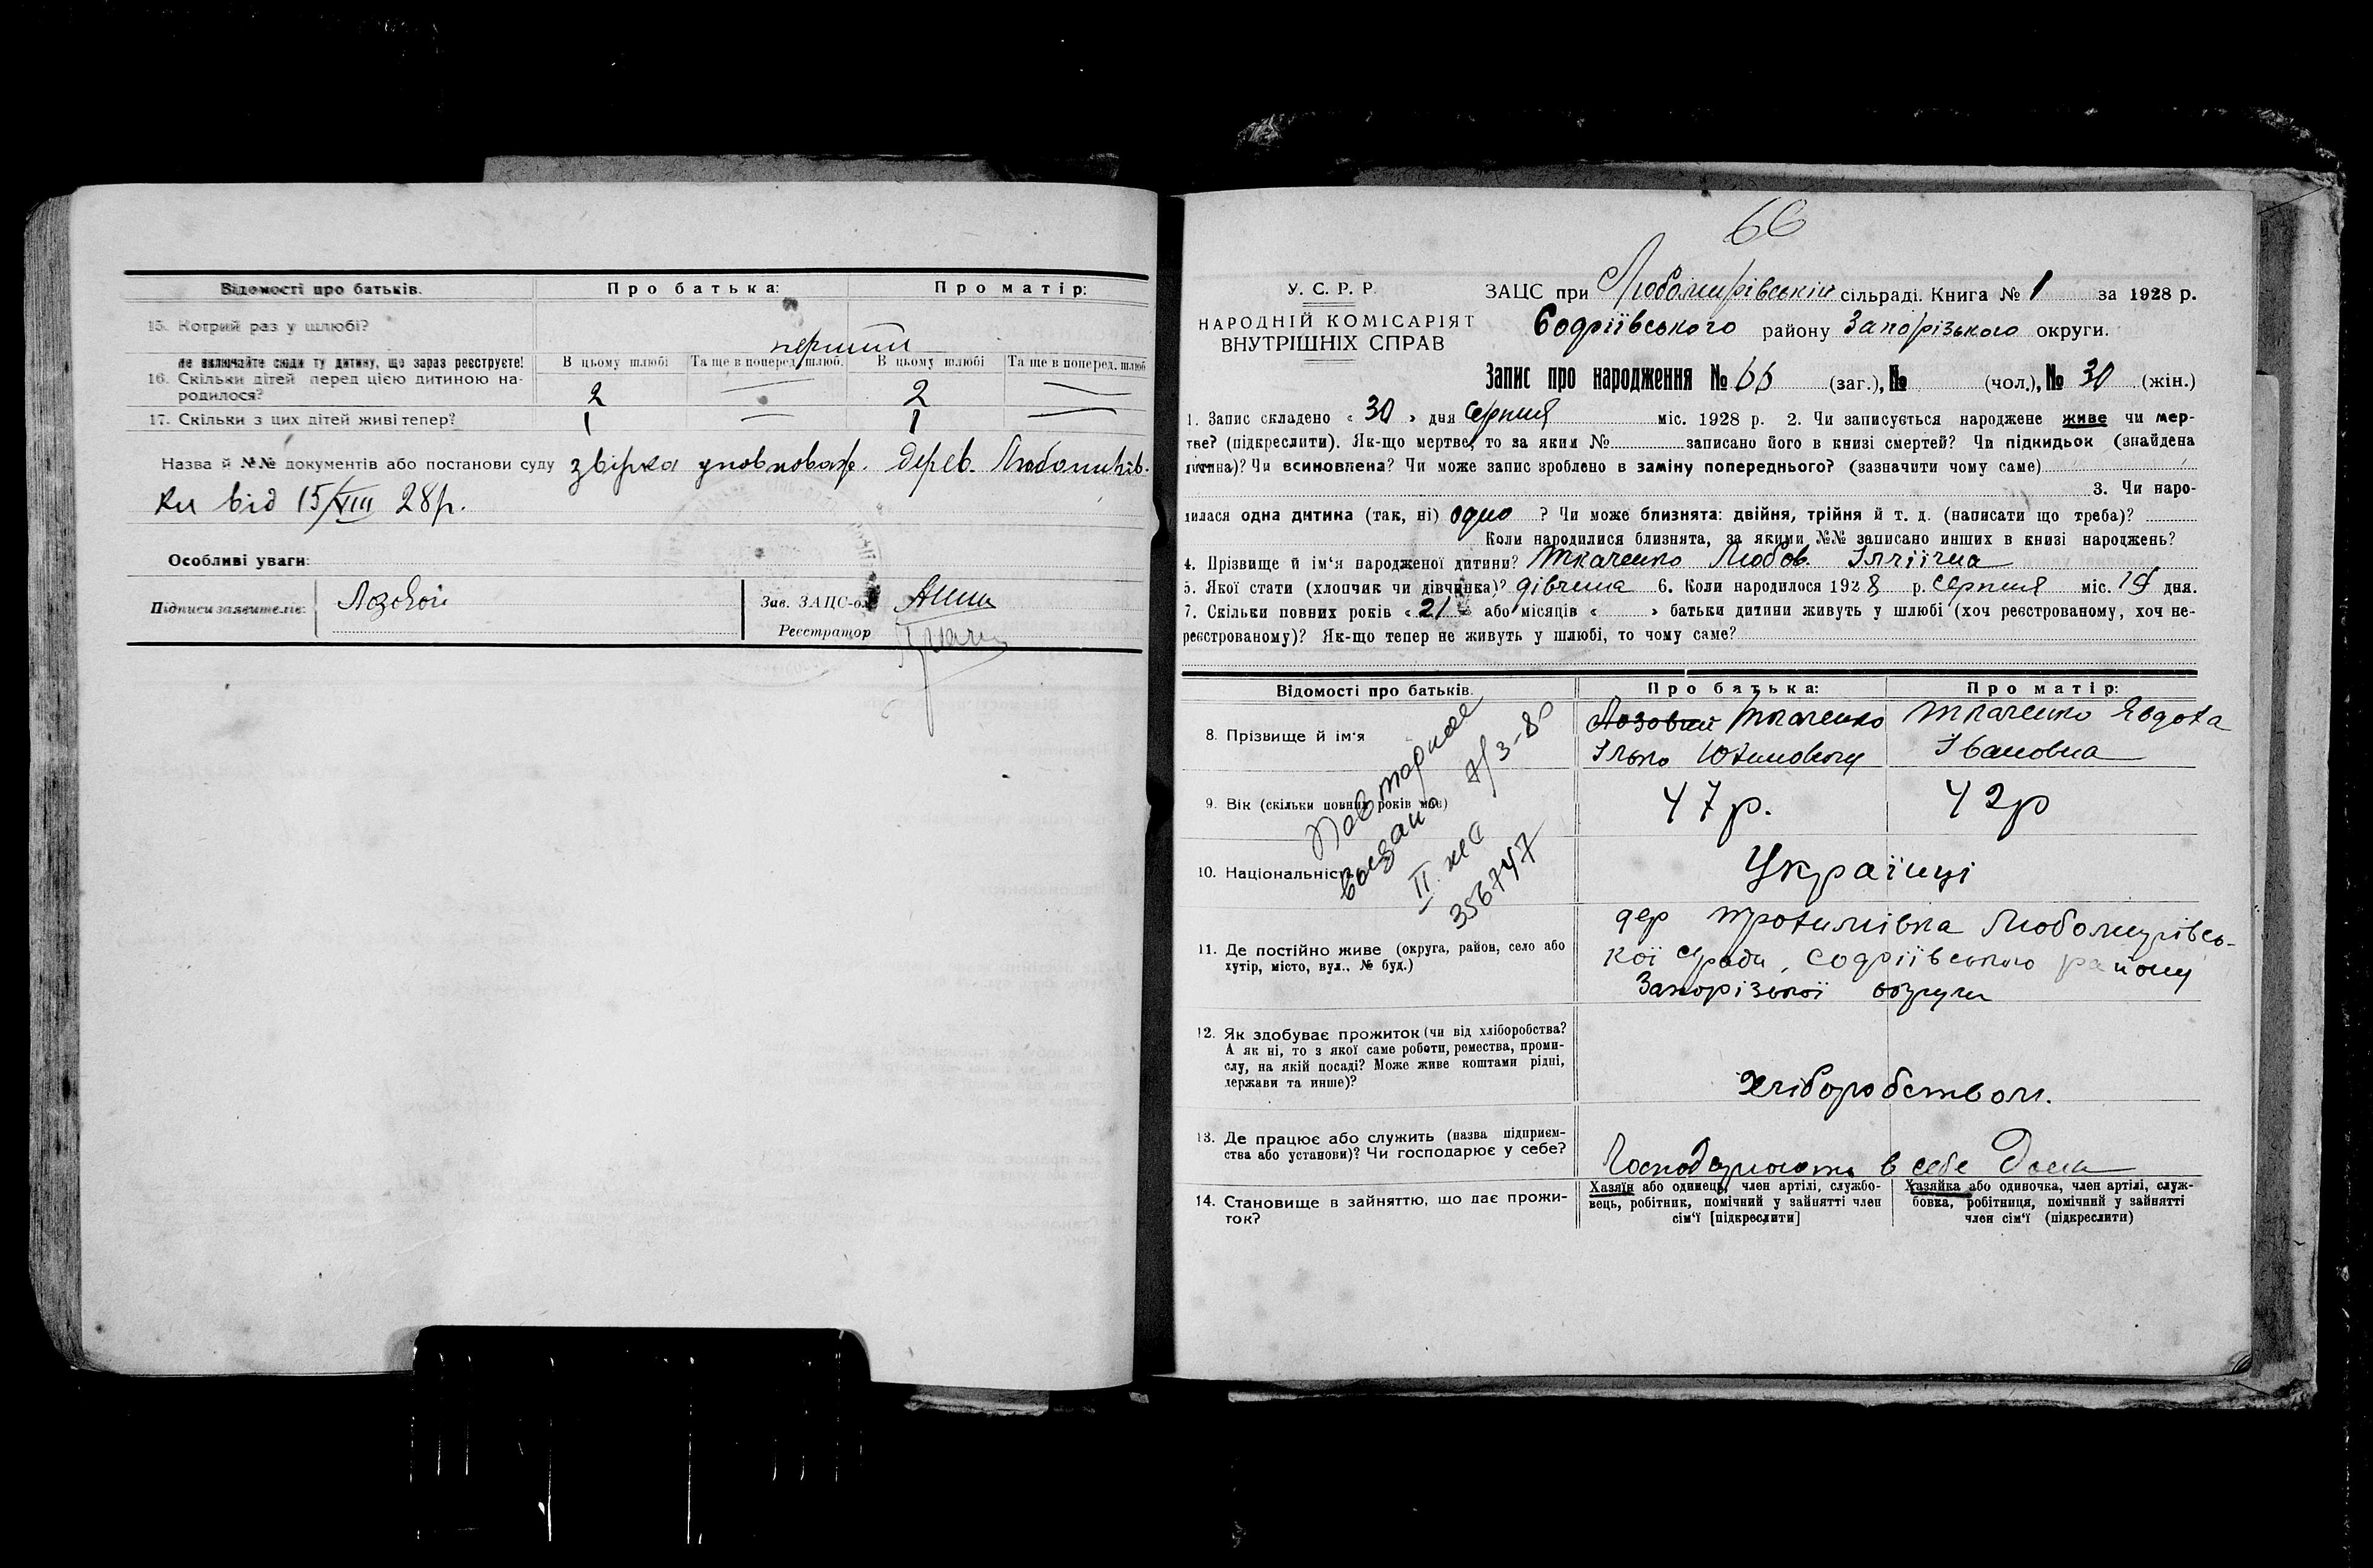 Відомості про батьків. Про батька: Про матір:
15. Котрий раз у шлюбі? перший
не включайте сюди ту дитину, що зараз реєструєте! В цьому шлюбі Та ще в поперед. шлюб. В цьому шлюбі Та ще в поперед. шлюб
16. Скільки дітей перед цією дитиною на-
родилося? 2 — 2 —
17. Скільки з цих дітей живі тепер? 1 — 1 —
Назва й №№ документів або постанови суду звірка уповноваж. дерев. Любомирів.
ки від 15/VIII 28р.
Особливі уваги:
Підписи заявителів: Лозовой Зав. ЗАЦС-ом
Реєстратор
66
У. С. Р. Р.
НАРОДНІЙ КОМІСАРІЯТ
ВНУТРІШНІХ СПРАВ
ЗАЦС при Любомирівській сільраді. Книга № 1 за 1928 р.
Софіївського району Запорізького округи.
Запис про народження № 66 (заг.), № (чол.), № 30 (жін.)
1. Запис складено « 30 » дня Серпня міс. 1928 р. 2. Чи записується народжене живе чи мер-
тве? (підкреслити). Як-що мертве, то за яким № записано його в книзі смертей? Чи підкидьок (знайдена
дитина)? Чи всиновлена? Чи може запис зроблено в заміну попереднього? (зазначити чому саме)
3. Чи наро-
дилася одна дитина (так, ні) одно ? Чи може близнята: двійня, трійня й т. д. (написати що треба)?
Коли народилися близнята, за якими №№ записано инших в книзі народжень?
4. Прізвище й ім'я народженої дитини? Ткаченко Любов. Іллічна
5. Якої стати (хлопчик чи дівчинка)? дівчина 6. Коли народилося 1928 р. Серпня міс. дня.
7. Скільки повних років « 21 » або місяців « » батьки дитини живуть у шлюбі (хоч реєстрованому, хоч не-
реєстрованому)? Як-що тепер не живуть у шлюбі, то чому саме?
Відомості про батьків. Про батька: Про матір:
8. Прізвище й ім'я Лозовий Ткаченко Ткаченко Явдоха
Ілько Юхимович Івановна
9. Вік (скільки повних років має) 47р. 42р
10. Національність Українці
Повторное
выдано 7/3-80
II. ЖС
356747
11. Де постійно живе (округа, район, село або
хутір, місто, вул., № буд.)
дер Трохимівка Любомирівсь-
кої с/ради, Софіївського району
Запорізької округи
12. Як здобуває прожиток (чи від хліборобства?
А як ні, то з якої саме роботи, ремества, проми-
слу, на якій посаді? Може живе коштами рідні,
держави та инше)?
Хліборобством.
13. Де працює або служить (назва підприєм-
ства або установи)? Чи господарює у себе?
Господарюють в себе Дома
14. Становище в зайняттю, що дає прожи-
ток?
Хазяїн або одинець, член артілі, службо-
вець, робітник, помічний у зайнятті член
сім'ї [підкреслити]
Хазяйка або одиночка, член артілі, служ-
бовка, робітниця, помічний у зайнятті
член сім'ї (підкреслити)